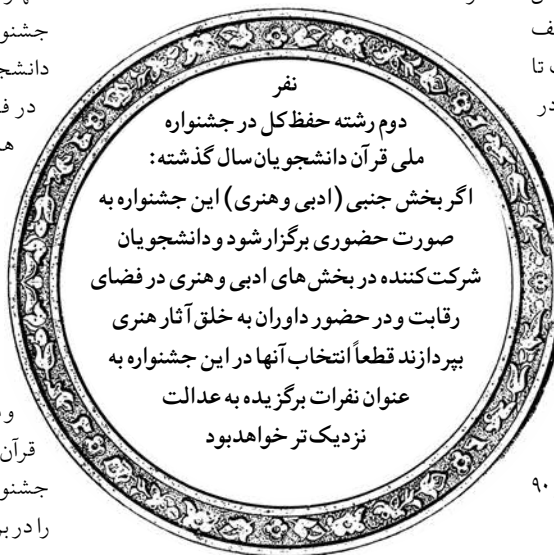 نفر
دوم رشته حفظ کل در جشنواره
ملی قرآن دانشجویان سال گذشته:
اگر بخش جنبی (ادبی وهنری) این جشنواره به
صورت حضوری برگزار شود و دانشجویان
شرکت‌کننده در بخش‌های ادبی وهنری در فضای
رقابت ودر حضور داوران به خلق آثار هنری
بپردازند قطعاً انتخاب آنها در این جشنواره به
عنوان نفرات برگزیده به عدالت
نزدیک‌تر خواهدبود
تا
در
۹۰
در
قرآن
را در